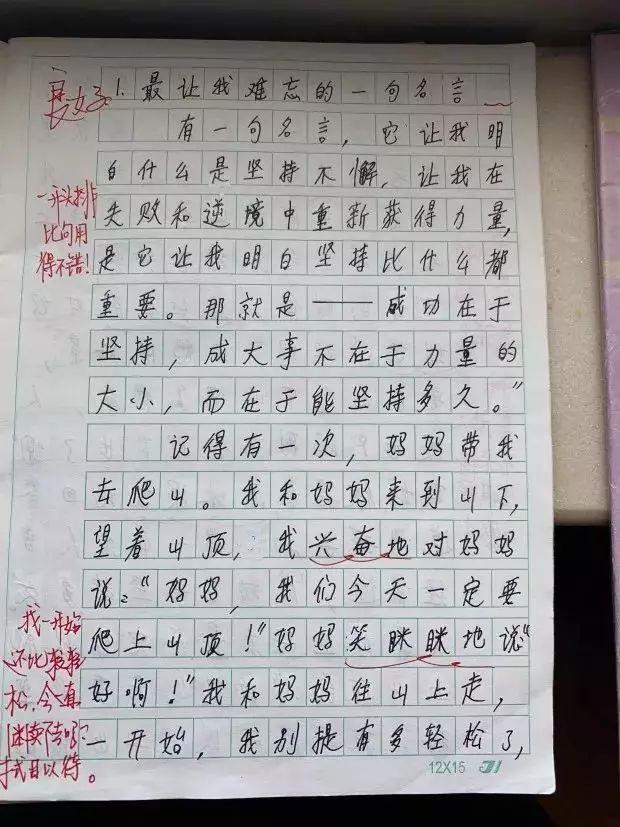 良好
1. 最让我难忘的一句名言
有一句名言，它让我明
白什么是坚持不懈，让我在
失败和逆境中重新获得力量，
是它让我明白坚持比什么都
重要。那就是——成功在于
坚持，成大事不在于力量的
大小，而在于能坚持多久。”
记得有一次，妈妈带我
去爬山。我和妈妈来到山下，
望着山顶，我兴奋地对妈妈
说：“妈妈，我们今天一定要
爬上山顶！”妈妈笑眯眯地说“
好啊！”我和妈妈往山上走，
一开始，我别提有多轻松了，
一开头排
比句用
得不错！
我一开始
还比较轻
松，今真
继续下去吗？
拭目以待。
12X15